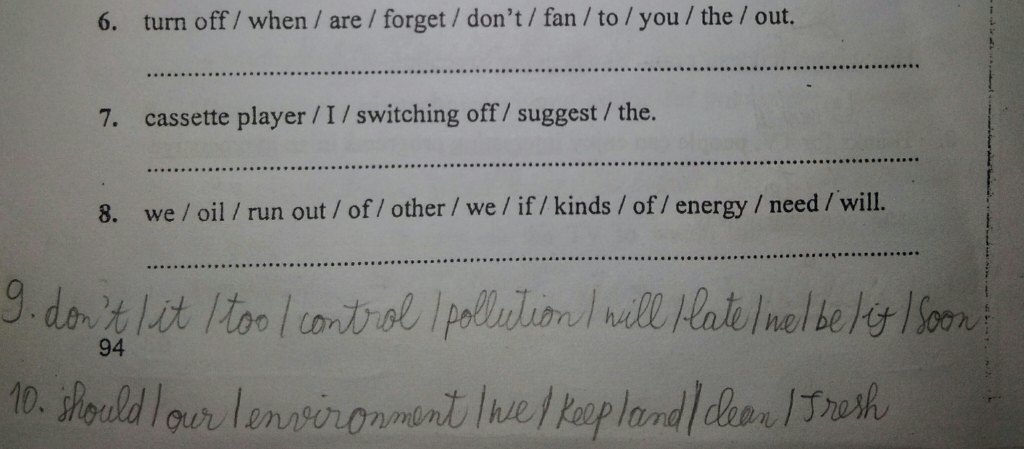 6. turn off / when / are / forget / don't / fan / to / you / the / out.
7. cassette player / I / switching off / suggest / the.
8. we / oil / run out / of / other / we / if / kinds / of / energy / need / will.
9. don't / it / too / control / pollution / will / late / we / be / if / soon
94
10. should / our / environment / we / keep / and / clean / fresh